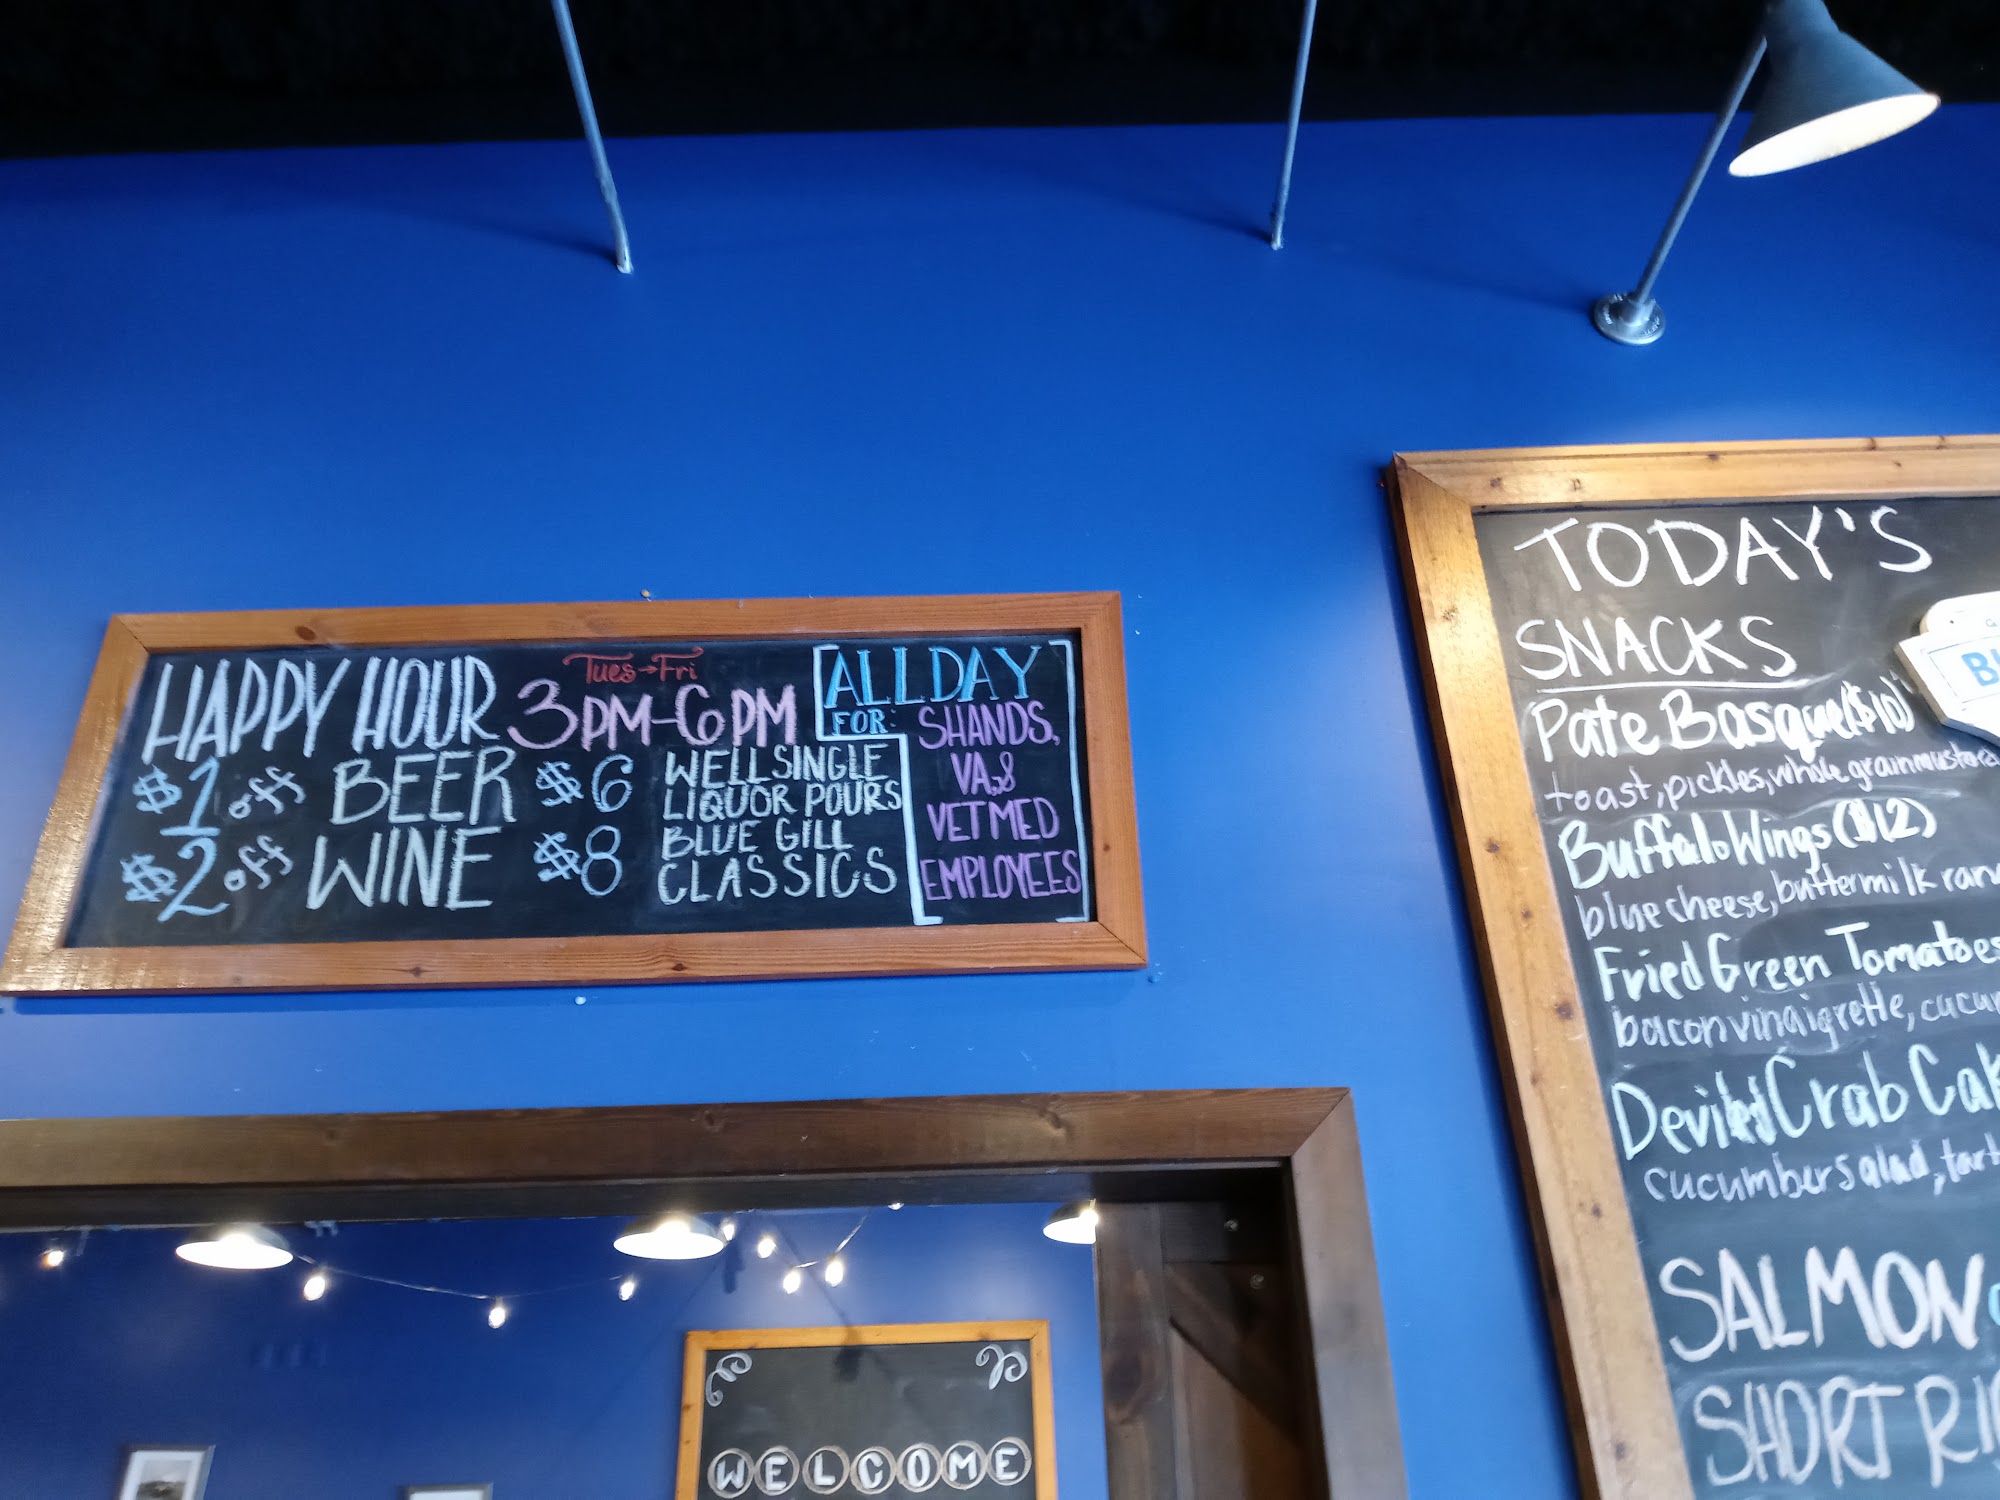 HAPPY HOUR
Tues→Fri
3PM-6PM
$1 off BEER
$2 off WINE
$6 WELL SINGLE
LIQUOR POURS
$8 BLUE GILL
CLASSICS
ALL DAY
FOR: SHANDS,
VA, &
VET MED
EMPLOYEES
TODAY'S
SNACKS
Pate Basque ($10)
toast, pickles, whole grain mustard
Buffalo Wings ($12)
blue cheese, buttermilk ran
Fried Green Tomatoes
bacon vinaigrette, cucum
Deviled Crab Cak
cucumber salad, tart
SALMON
SHORT RI
WELCOME